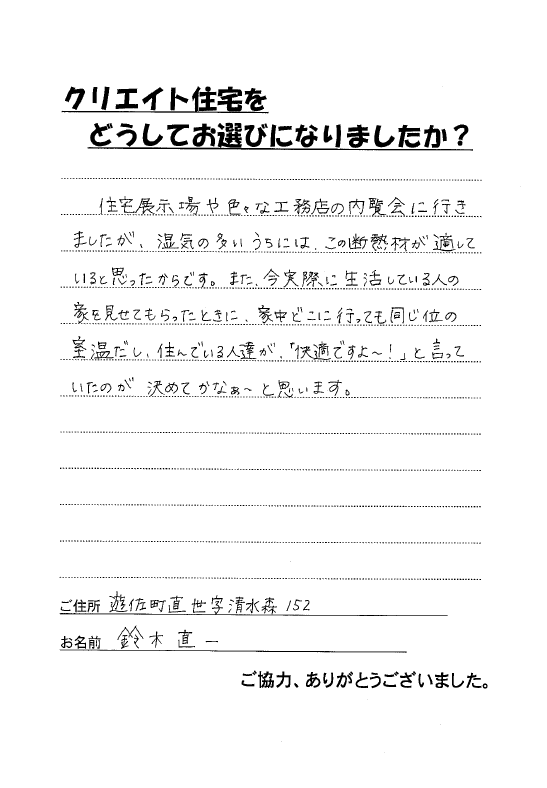 クリエイト住宅を
どうしてお選びになりましたか？
住宅展示場や色々な工務店の内覧会に行き
ましたが、湿気の多いうちには、この断熱材が適して
いると思ったからです。また、今実際に生活している人の
家を見せてもらったときに、家中どこに行っても同じ位の
室温だし、住んでいる人達が、「快適ですよ～！」と言って
いたのが 決めてかなぁ～と思います。
ご住所 遊佐町直世字清水森 152
お名前 鈴木直一
ご協力、ありがとうございました。